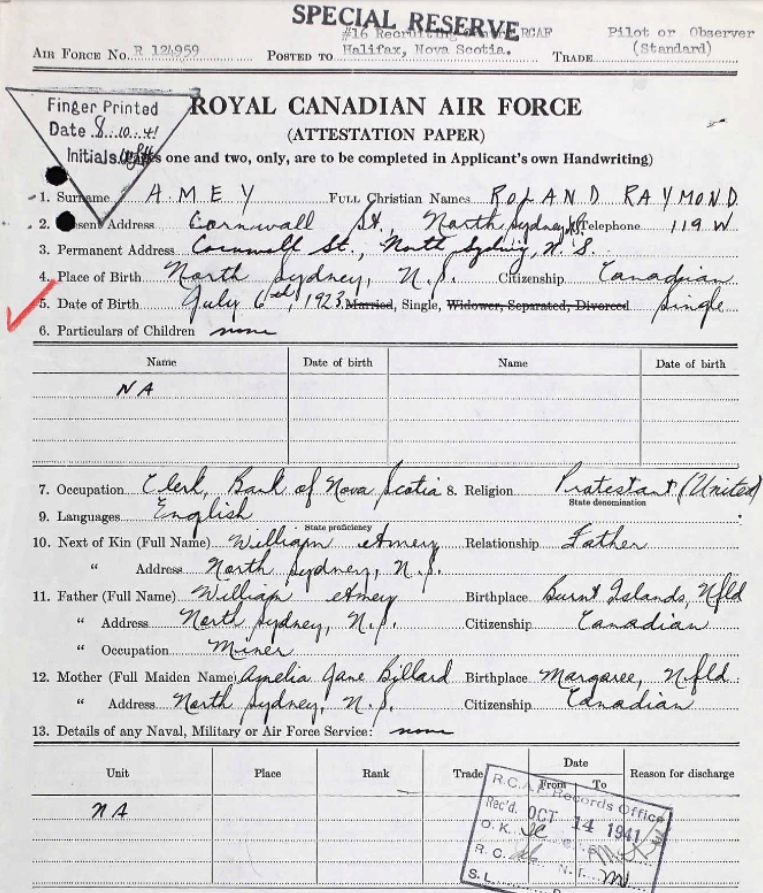 SPECIAL RESERVE
#16 Recruiting RCAF
Pilot or Observer
AIR FORCE NO. R 124959 POSTED TO Halifax, Nova Scotia. TRADE (Standard)
Finger Printed
Date 8.10.41
Initials
ROYAL CANADIAN AIR FORCE
(ATTESTATION PAPER)
one and two, only, are to be completed in Applicant's own Handwriting)
1. Surname AMEY FULL Christian Names ROLAND RAYMOND
2. Present Address Cornwall St., North Sydney, Telephone 119 W
3. Permanent Address Cornwall St., North Sydney, N.S.
4. Place of Birth North Sydney, N.S. Citizenship Canadian
5. Date of Birth July 6th, 1923 Married, Single, Widower, Separated, Divorced Single
6. Particulars of Children none
Name Date of birth Name Date of birth
NA
7. Occupation Clerk, Bank of Nova Scotia 8. Religion Protestant (United)
State denomination
9. Languages English
State proficiency
10. Next of Kin (Full Name) William Amey Relationship Father
" Address North Sydney, N.S.
11. Father (Full Name) William Amey Birthplace Burnt Islands, Nfld
" Address North Sydney, N.S. Citizenship Canadian
" Occupation Miner
12. Mother (Full Maiden Name) Amelia Jane Billard Birthplace Margaree, Nfld.
" Address North Sydney, N.S. Citizenship Canadian
13. Details of any Naval, Military or Air Force Service: none
Unit Place Rank Trade Date From To Reason for discharge
NA
R.C.A.F. Records Office
Rec'd. OCT 14 1941
O.K.
R.C.
S.L.